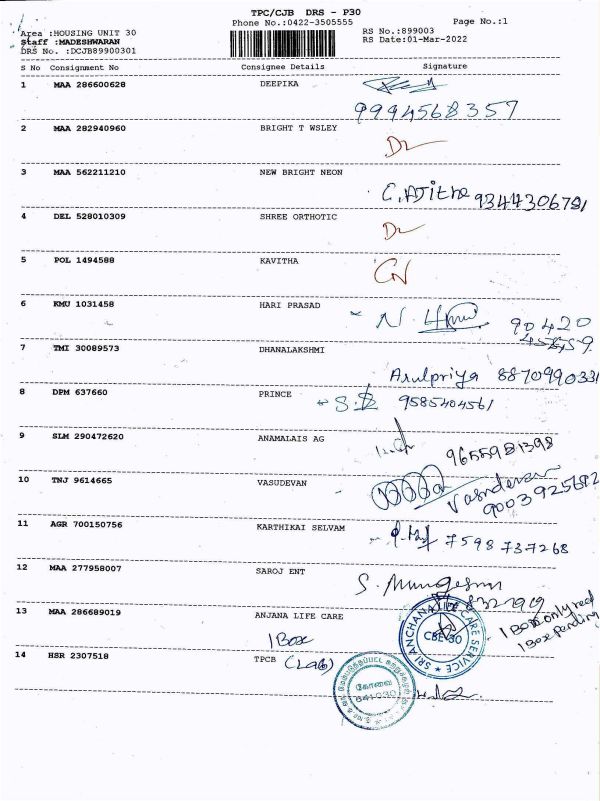 TPC/CJB DRS - P30
Phone No.:0422-3505555
Page No.:1
Area :HOUSING UNIT 30
RS No.:899003
Staff :MADESHWARAN
RS Date:01-Mar-2022
DRS No. :DCJB89900301
S No Consignment No Consignee Details Signature
1 MAA 286600628 DEEPIKA
9994568357
2 MAA 282940960 BRIGHT T WSLEY
3 MAA 562211210 NEW BRIGHT NEON
C. Ajitha 9344306781
4 DEL 528010309 SHREE ORTHOTIC
5 POL 1494588 KAVITHA
6 KMU 1031458 HARI PRASAD
90420
7 TMI 30089573 DHANALAKSHMI
Arulpriya 8870990331
8 DPM 637660 PRINCE
9585404561
9 SLM 290472620 ANAMALAIS AG
9655981398
10 TNJ 9614665 VASUDEVAN
Vasudevan
9003925682
11 AGR 700150756 KARTHIKAI SELVAM
7598737268
12 MAA 277958007 SAROJ ENT
S. Murugesan
13 MAA 286689019 ANJANA LIFE CARE
1 Box
SRI ANCHANA LIFE CARE SERVICE
CBE-30
1 Box only recd
1 Box pending
14 HSR 2307518 TPCB
கோவை
641030